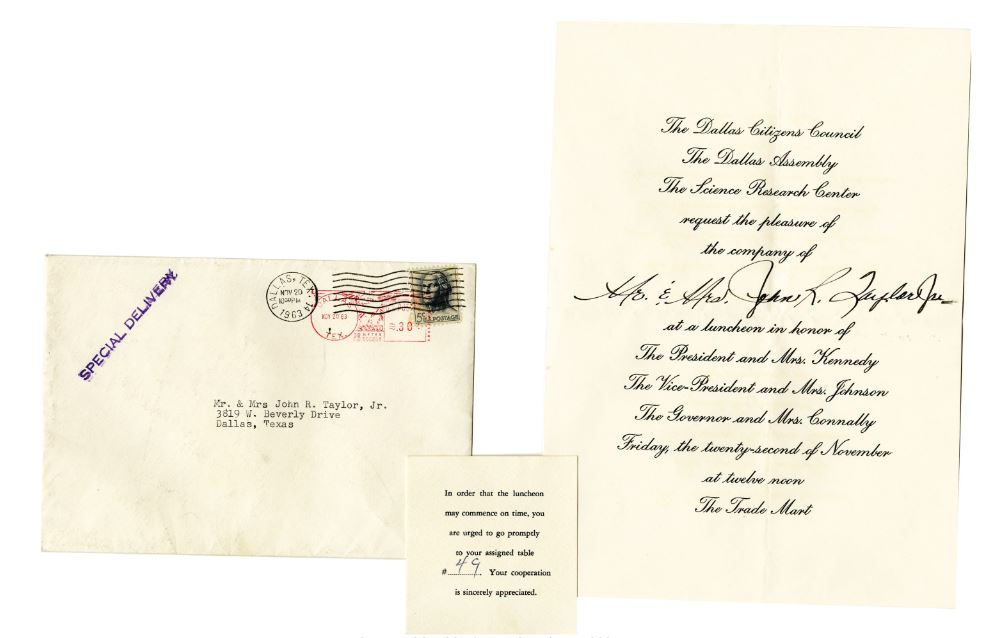 SPECIAL DELIVERY
DALLAS, TEX. 14
NOV 20
1963
NOV 20 63
TEX.
.30
5¢ U.S. POSTAGE
Mr. & Mrs John R. Taylor, Jr.
3819 W. Beverly Drive
Dallas, Texas
In order that the luncheon
may commence on time, you
are urged to go promptly
to your assigned table
# 49. Your cooperation
is sincerely appreciated.
The Dallas Citizens Council
The Dallas Assembly
The Science Research Center
request the pleasure of
the company of
Mr. & Mrs. John R. Taylor Jr.
at a luncheon in honor of
The President and Mrs. Kennedy
The Vice-President and Mrs. Johnson
The Governor and Mrs. Connally
Friday, the twenty-second of November
at twelve noon
The Trade Mart